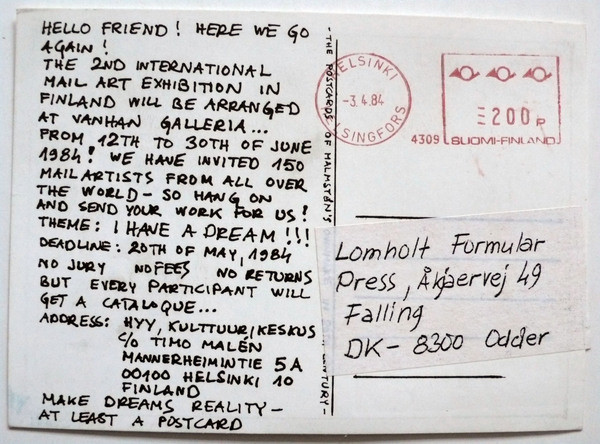 HELLO FRIEND! HERE WE GO
AGAIN!
THE 2ND INTERNATIONAL
MAIL ART EXHIBITION IN
FINLAND WILL BE ARRANGED
AT VANHAN GALLERIA...
FROM 12TH TO 30TH OF JUNE
1984! WE HAVE INVITED 150
MAILARTISTS FROM ALL OVER
THE WORLD - SO HANG ON
AND SEND YOUR WORK FOR US!
THEME: I HAVE A DREAM!!!
DEADLINE: 20TH OF MAY, 1984
NO JURY NO FEES NO RETURNS
BUT EVERY PARTICIPANT WILL
GET A CATALOQUE...
ADDRESS: HYY, KULTTUURIKESKUS
C/O TIMO MALÉN
MANNERHEIMINTIE 5A
00100 HELSINKI 10
FINLAND
MAKE DREAMS REALITY -
AT LEAST A POSTCARD
-THE POSTCARDS OF MALMSTÉN'S
CENTURY-
HELSINKI
-3.4.84
HELSINGFORS
200 P
4309 SUOMI-FINLAND
Lomholt Formular
Press, Åkjaervej 49
Falling
DK- 8300 Odder